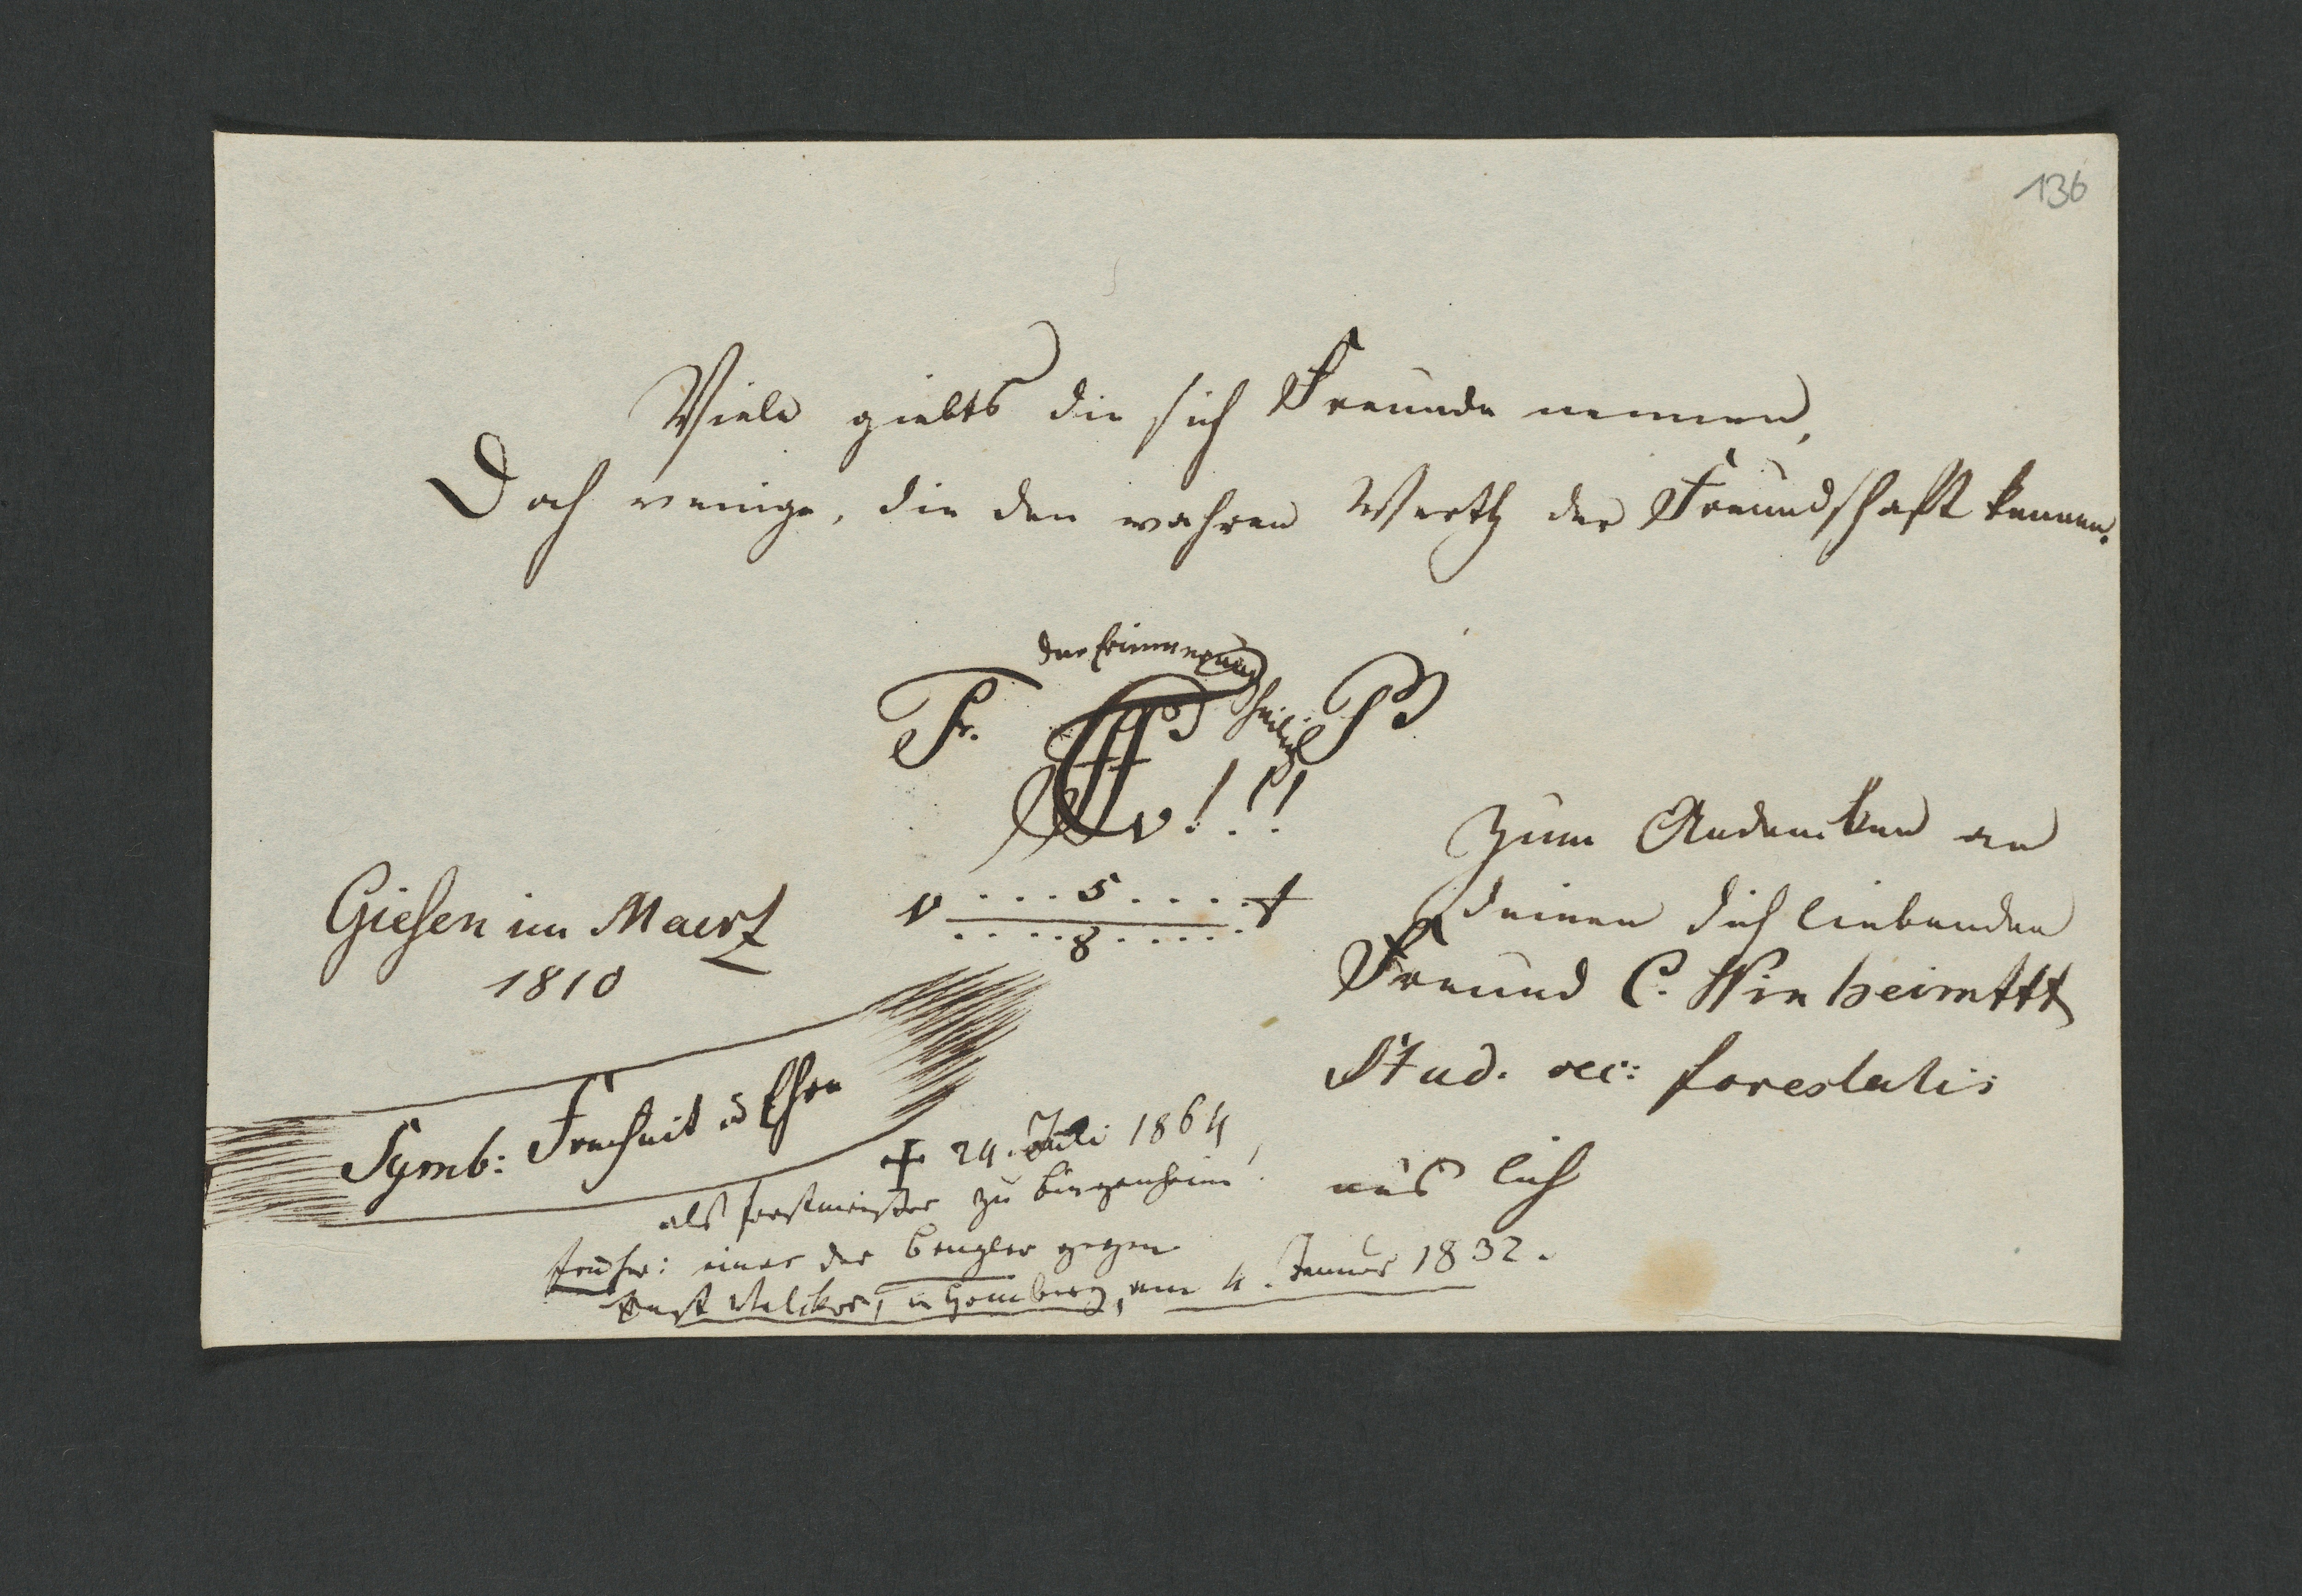 136
Viele giebts die sich Freunde nennen,
Doch wenige, die den wahren Werth der Freundschaft kennen.
der Erinnerung heilig
Fr. B
v!!!
v....5....+
....8.....
Giesen im Maerz
1810
Zum Andenken an
deinen dich liebenden
Freund C. Weinheimer
Stud. rei: forestalis
aus Lich
Symb: Freiheit & Ehre
+ 24. Juli 1864,
als Forstmeister zu Bingenheim.
früher: einer der Bengler gegen
Ernst Melchior, in Homberg, am 4. Januar 1832.